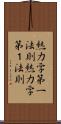 熱力学第一
法則熱力学
第１法則